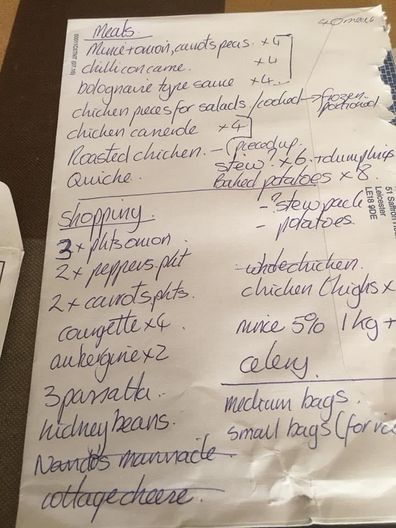 Meals
40 meals
Mince + onion, carrots peas. x4
chilli con carne. x4
bolognaise type sauce x4
chicken pieces for salads / cooked → frozen portioned
chicken cariende x4
Roasted chicken. – pieced up.
stew? x 6. + dumplings
Quiche.
baked potatoes x 8.
51 Saffron
Leicester
LE18 9DE
Shopping
- ? stew pack
- potatoes
3 x pkts onion.
2 x peppers pkt
2 x carrots pkts.
courgette x 4
aubergine x 2
3 passatta.
kidney beans.
Nandos marinade
cottage cheese.
whole chicken.
chicken thighs x
mince 5% 1kg +
celery
medium bags.
small bags (for